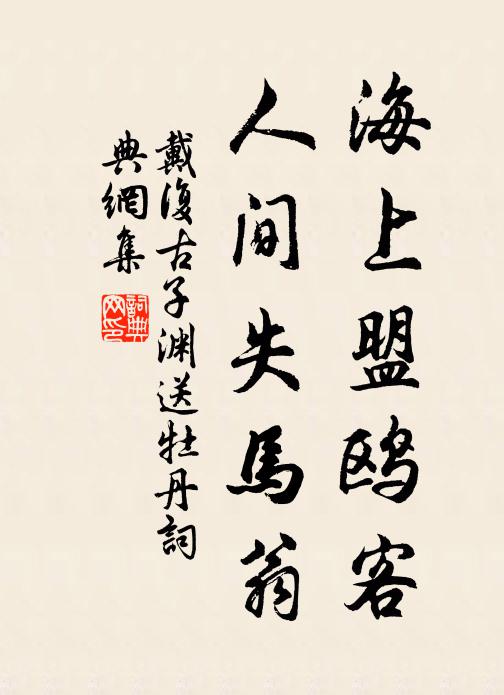 海上盟鸥客
人间失马翁
戴復古子渊送牡丹詞
典網集
詞典网印